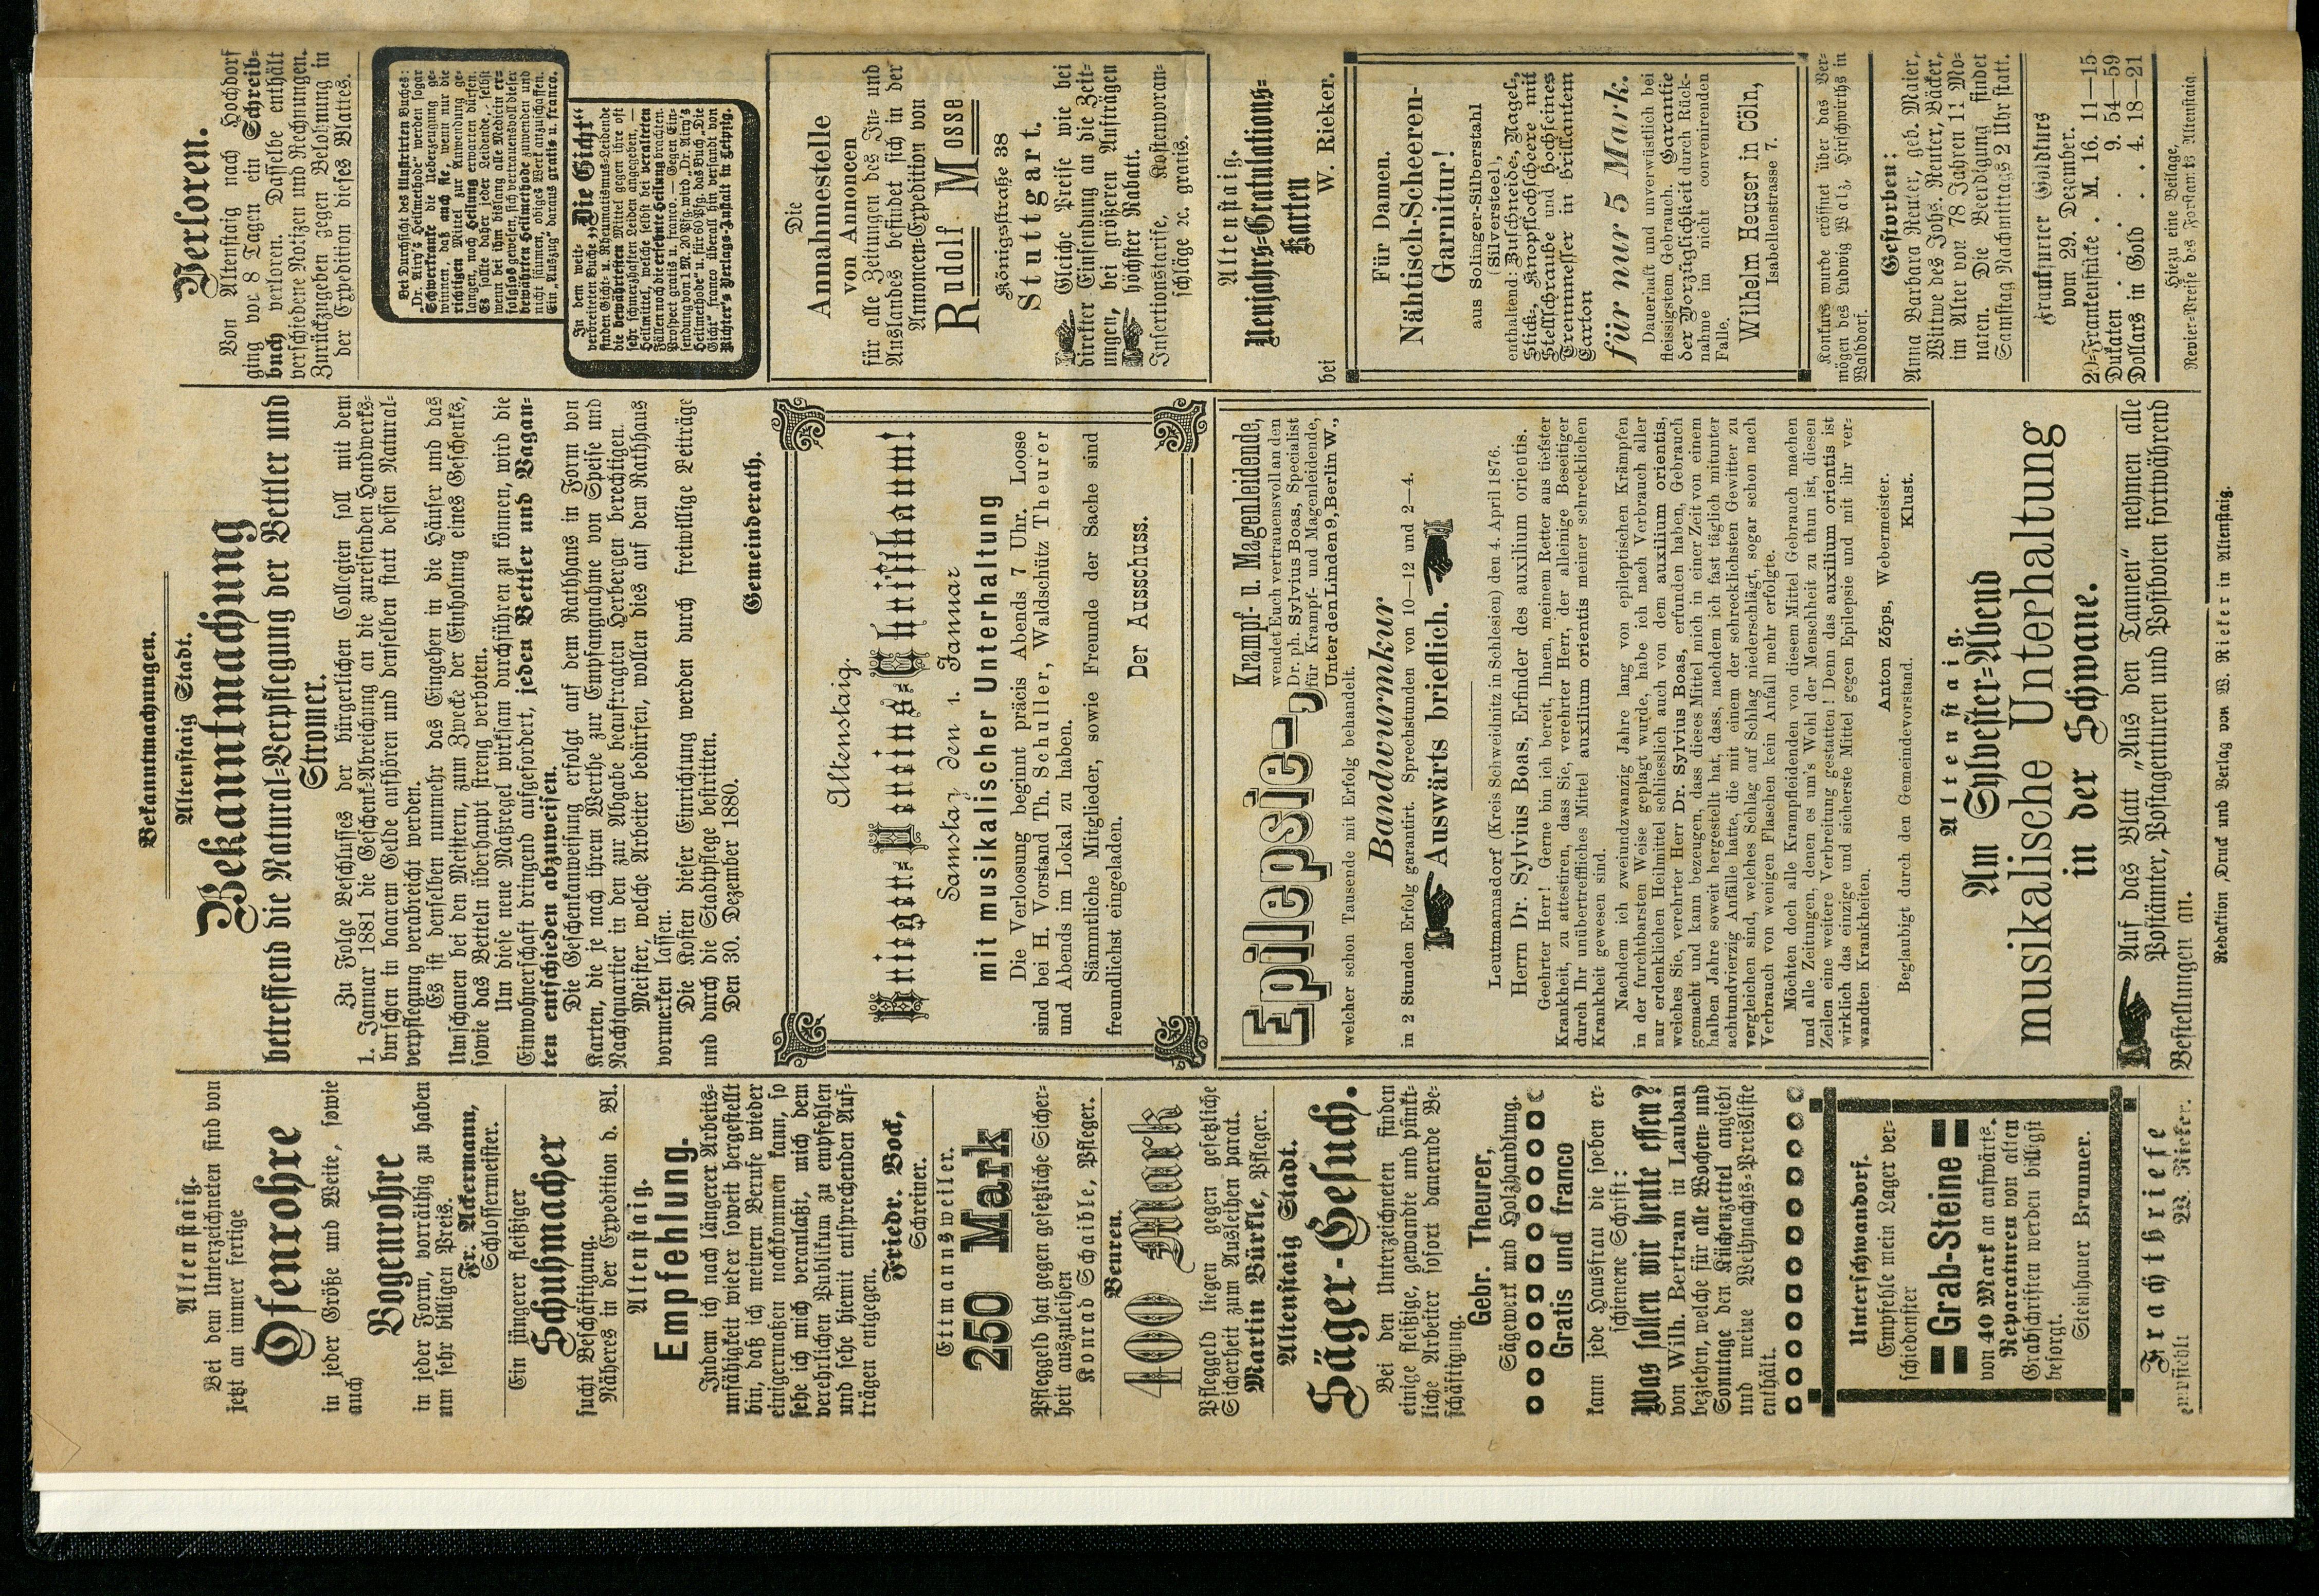 Bekanntmachungen.
Altenstaig.
Bei dem Unterzeichneten sind von
jetzt an immer fertige
Ofenrohre
in jeder Größe und Weite, sowie
auch
Bogenrohre
in jeder Form, vorräthig zu haben
um sehr billigen Preis.
Fr. Ackermann,
Schlossermeister.
Ein jüngerer fleißiger
Schuhmacher
sucht Beschäftigung.
Näheres in der Expedition d. Bl.
Altenstaig.
Empfehlung.
Indem ich nach längerer Arbeits-
unfähigkeit wieder soweit hergestellt
bin, daß ich meinem Berufe wieder
einigermaßen nachkommen kann, so
sehe ich mich veranlaßt, mich dem
verehrlichen Publikum zu empfehlen
und sehe hiemit entsprechenden Auf-
trägen entgegen.
Friedr. Bock,
Schreiner.
Ettmannsweiler.
250 Mark
Pfleggeld hat gegen gesetzliche Sicher-
heit auszuleihen
Konrad Schaible, Pfleger.
Beuren.
400 Mark
Pfleggeld liegen gegen gesetzliche
Sicherheit zum Ausleihen parat.
Martin Bürkle, Pfleger.
Altenstaig Stadt.
Säger-Gesuch.
Bei den Unterzeichneten finden
einige fleißige, gewandte und pünkt-
liche Arbeiter sofort dauernde Be-
schäftigung.
Gebr. Theurer,
Sägewerk und Holzhandlung.
Gratis und franco
kann jede Hausfrau die soeben er-
schienene Schrift:
Was sollen wir heute essen?
von Wilh. Bertram in Lauban
beziehen, welche für alle Wochen- und
Sonntage den Küchenzettel angiebt
und meine Weihnachts-Preisliste
enthält.
Unterschwandorf.
Empfehle mein Lager ver-
schiedenster
Grab-Steine
von 40 Mark an aufwärts.
Reparaturen von alten
Grabschriften werden billigst
besorgt.
Steinhauer Brunner.
Frachtbriefe
empfiehlt W. Rieker.
Altenstaig Stadt.
Bekanntmachung
betreffend die Natural-Verpflegung der Bettler und
Stromer.
Zu Folge Beschlusses der bürgerlichen Collegien soll mit dem
1. Januar 1881 die Geschenk-Abreichung an die zureisenden Handwerks-
burschen in barem Gelde aufhören und denselben statt dessen Natural-
verpflegung verabreicht werden.
Es ist denselben nunmehr das Eingehen in die Häuser und das
Umschauen bei den Meistern, zum Zwecke der Einholung eines Geschenks,
sowie das Betteln überhaupt streng verboten.
Um diese neue Maßregel wirksam durchführen zu können, wird die
Einwohnerschaft dringend aufgefordert, jeden Bettler und Vagan-
ten entschieden abzuweisen.
Die Geschenkanweisung erfolgt auf dem Rathhaus in Form von
Karten, die je nach ihrem Werthe zur Empfangnahme von Speise und
Nachtquartier in den zur Abgabe beauftragten Herbergen berechtigen.
Meister, welche Arbeiter bedürfen, wollen dies auf dem Rathhaus
vormerken lassen.
Die Kosten dieser Einrichtung werden durch freiwillige Beiträge
und durch die Stadtpflege bestritten.
Den 30. Dezember 1880.
Gemeinderath.
Altenstaig.
Samstag den 1. Januar
mit musikalischer Unterhaltung
Die Verloosung beginnt präcis Abends 7 Uhr. Loose
sind bei H. Vorstand Th. Schuller, Waldschütz Theurer
und Abends im Lokal zu haben.
Sämmtliche Mitglieder, sowie Freunde der Sache sind
freundlichst eingeladen.
Der Ausschuss.
Epilepsie-,
Krampf- u. Magenleidende,
wendet Euch vertrauensvoll an den
Dr. ph. Sylvius Boas, Specialist
für Krampf- und Magenleidende,
Unter den Linden 9, Berlin W.,
welcher schon Tausende mit Erfolg behandelt.
Bandwurmkur
in 2 Stunden Erfolg garantirt. Sprechstunden von 10—12 und 2—4.
Auswärts brieflich.
Leutmannsdorf (Kreis Schweidnitz in Schlesien) den 4. April 1876.
Herrn Dr. Sylvius Boas, Erfinder des auxilium orientis.
Geehrter Herr! Gerne bin ich bereit, Ihnen, meinem Retter aus tiefster
Krankheit, zu attestiren, dass Sie, verehrter Herr, der alleinige Beseitiger
durch Ihr unübertreffliches Mittel auxilium orientis meiner schrecklichen
Krankheit gewesen sind.
Nachdem ich zweiundzwanzig Jahre lang von epileptischen Krämpfen
in der furchtbarsten Weise geplagt wurde, habe ich nach Verbrauch aller
nur erdenklichen Heilmittel schliesslich auch von dem auxilium orientis,
welches Sie, verehrter Herr Dr. Sylvius Boas, erfunden haben, Gebrauch
gemacht und kann bezeugen, dass dieses Mittel mich in einer Zeit von einem
halben Jahre soweit hergestellt hat, dass, nachdem ich fast täglich mitunter
achtundvierzig Anfälle hatte, die mit einem der schrecklichsten Gewitter zu
vergleichen sind, welches Schlag auf Schlag niederschlägt, sogar schon nach
Verbrauch von wenigen Flaschen kein Anfall mehr erfolgte.
Möchten doch alle Krampfleidenden von diesem Mittel Gebrauch machen
und alle Zeitungen, denen es um's Wohl der Menschheit zu thun ist, diesen
Zeilen eine weitere Verbreitung gestatten! Denn das auxilium orientis ist
wirklich das einzige und sicherste Mittel gegen Epilepsie und mit ihr ver-
wandten Krankheiten.
Anton Zöps, Webermeister.
Beglaubigt durch den Gemeindevorstand. Klust.
Altenstaig.
Am Sylvester-Abend
musikalische Unterhaltung
in der Schwane.
Auf das Blatt „Aus den Tannen“ nehmen alle
Postämter, Postagenturen und Postboten fortwährend
Bestellungen an.
Verloren.
Von Altenstaig nach Hochdorf
ging vor 8 Tagen ein Schreib-
buch verloren. Dasselbe enthält
verschiedene Notizen und Rechnungen.
Zurückzugeben gegen Belohnung in
der Expedition dieses Blattes.
Bei Durchsicht des illustrirten Buches:
„Dr. Airy's Heilmethode“ werden sogar
Schwerkranke die Ueberzeugung ge-
winnen, daß auch sie, wenn nur die
richtigen Mittel zur Anwendung ge-
langen, noch Heilung erwarten dürfen.
Es sollte daher jeder Leidende, selbst
wenn bei ihm bislang alle Medicin er-
folglos gewesen, sich vertrauensvoll dieser
bewährten Heilmethode zuwenden und
nicht säumen, obiges Werk anzuschaffen.
Ein „Auszug“ daraus gratis u. franco.
In dem weit-
verbreiteten Buche „Die Gicht“
finden Gicht- u. Rheumatismus-Leidende
die bewährtesten Mittel gegen ihre oft
sehr schmerzhaften Leiden angegeben, —
Heilmittel, welche selbst bei veralteten
Fällen noch die ersehnte Heilung brachten.
Prospect gratis u. franco. — Gegen Ein-
sendung von 1 M. 20 Pfg. wird „Dr. Airy's
Heilmethode“ u. für 60 Pfg. das Buch „Die
Gicht“ franco überall hin versandt von
Richter's Verlags-Anstalt in Leipzig.
Die
Annahmestelle
von Annoncen
für alle Zeitungen des In- und
Auslandes befindet sich in der
Annoncen-Expedition von
Rudolf Mosse
Königsstraße 38
Stuttgart.
Gleiche Preise wie bei
direkter Einsendung an die Zeit-
ungen, bei größeren Aufträgen
höchster Rabatt.
Insertionstarife, Kostenvoran-
schläge ꝛc. gratis.
Altenstaig.
Neujahrs-Gratulations-
Karten
bei W. Rieker.
Für Damen.
Nähtisch-Scheeren-
Garnitur!
aus Solinger-Silberstahl
(Silversteel),
enthaltend: Buschneide-, Nagel-,
Stick-, Knopflochscheere mit
Stellschraube und hochfeines
Trennmesser in brillantem
Carton
für nur 5 Mark.
Dauerhaft und unverwüstlich bei
fleissigstem Gebrauch. Garantie
der Vorzüglichkeit durch Rück-
nahme im nicht convenirenden
Falle.
Wilhelm Heuser in Cöln,
Isabellenstrasse 7.
Konkurs wurde eröffnet über das Ver-
mögen des Ludwig Walz, Hirschwirths in
Walddorf.
Gestorben:
Anna Barbara Reuter, geb. Maier,
Witwe des Johs. Reuter, Bäcker,
im Alter von 78 Jahren 11 Mo-
naten. Die Beerdigung findet
Samstag Nachmittags 2 Uhr statt.
Frankfurter Goldkurs
vom 29. Dezember.
20-Frankenstücke . M. 16. 11—15
Dukaten . . . 9. 54—59
Dollars in Gold . . . 4. 18—21
Hiezu eine Beilage,
Revier-Preise des Forstamts Altenstaig.
Redaktion, Druck und Verlag von W. Rieker in Altenstaig.